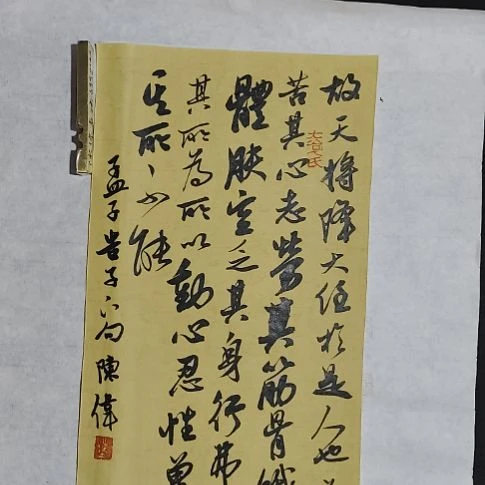 故天將降大任於是人也
苦其心志勞其筋骨餓
體膚空乏其身行弗
其所為所以動心忍性曾
其所不能
孟子告子下句 陳偉